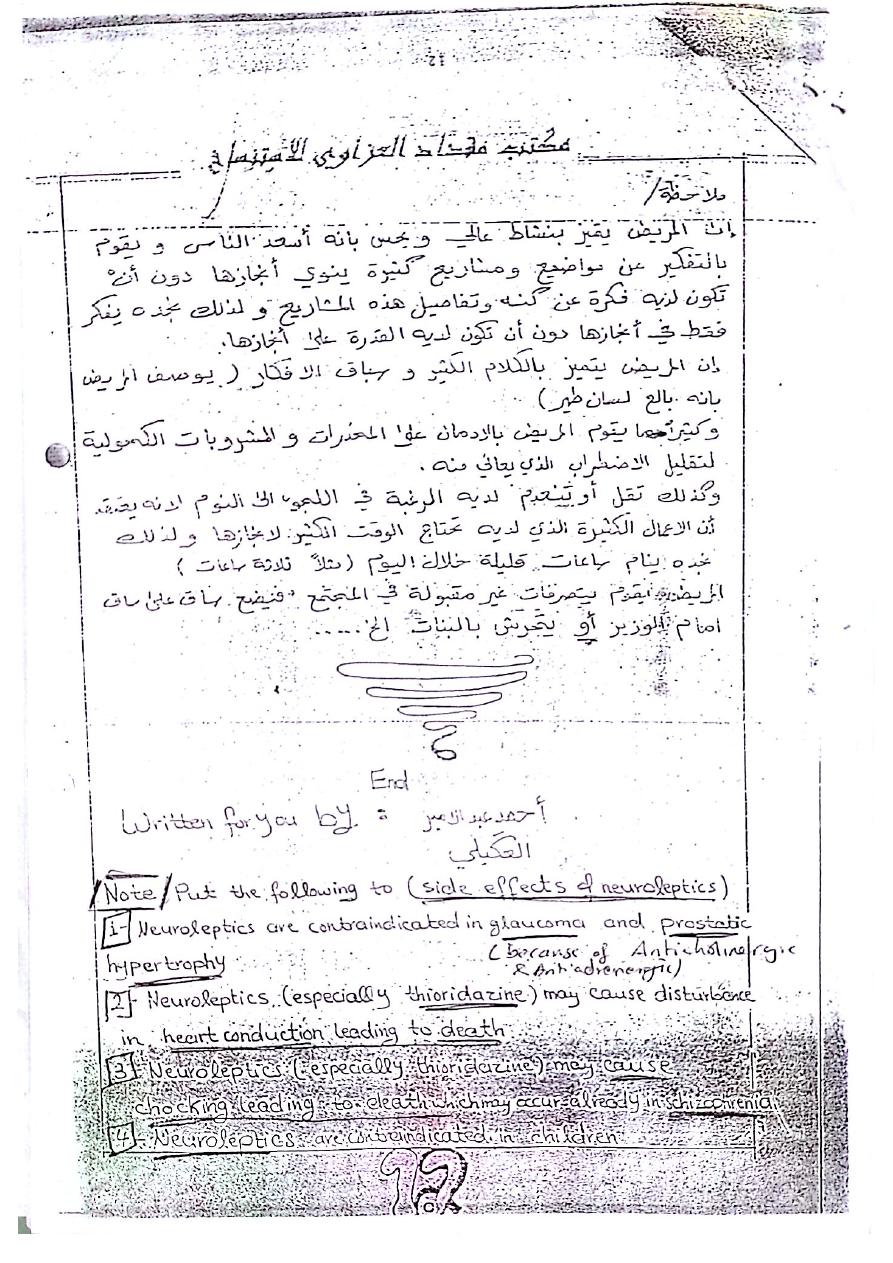 12
مكتب مقداد العزاوي للاستنساخ
ملاحظة /
إن المريض يتميز بنشاط عالي و يحس بانه أسعد الناس و يقوم
بالتفكير عن مواضيع ومشاريع كثيرة ينوي أنجازها دون أن
تكون لديه فكرة عن كنه وتفاصيل هذه المشاريع و لذلك نجده يفكر
فقط في أنجازها دون أن تكون لديه القدرة على أنجازها.
إن المريض يتميز بالكلام الكثير و سباق الافكار ( يوصف المريض
بانه بالع لسان طير )
وكثيراً ما يقوم المريض بالادمان على المخدرات و المشروبات الكحولية
لتقليل الاضطراب الذي يعاني منه .
وكذلك تقل أو تنعدم لديه الرغبة في اللجوء الى النوم لانه يعتقد
أن الاعمال الكثيرة الذي لديه تحتاج الوقت الكثير لانجازها ولذلك
نجده ينام ساعات قليلة خلال اليوم ( مثلاً ثلاثة ساعات )
المريض يقوم بتصرفات غير مقبولة في المجتمع فيضع ساق على ساق
امام الوزير أو يتحرش بالبنات الخ .....
End
Written for you by : أحمد عبد الامير
العكيلي
Note / Put the following to (side effects of neuroleptics)
1- Neuroleptics are contraindicated in glaucoma and prostatic
hypertrophy (because of Anticholinergic
& Antiadrenergic)
2- Neuroleptics (especially thioridazine) may cause disturbance
in heart conduction leading to death
3- Neuroleptics (especially thioridazine) may cause
chocking leading to death which may occur already in schizophrenia
4- Neuroleptics are contraindicated in children
12